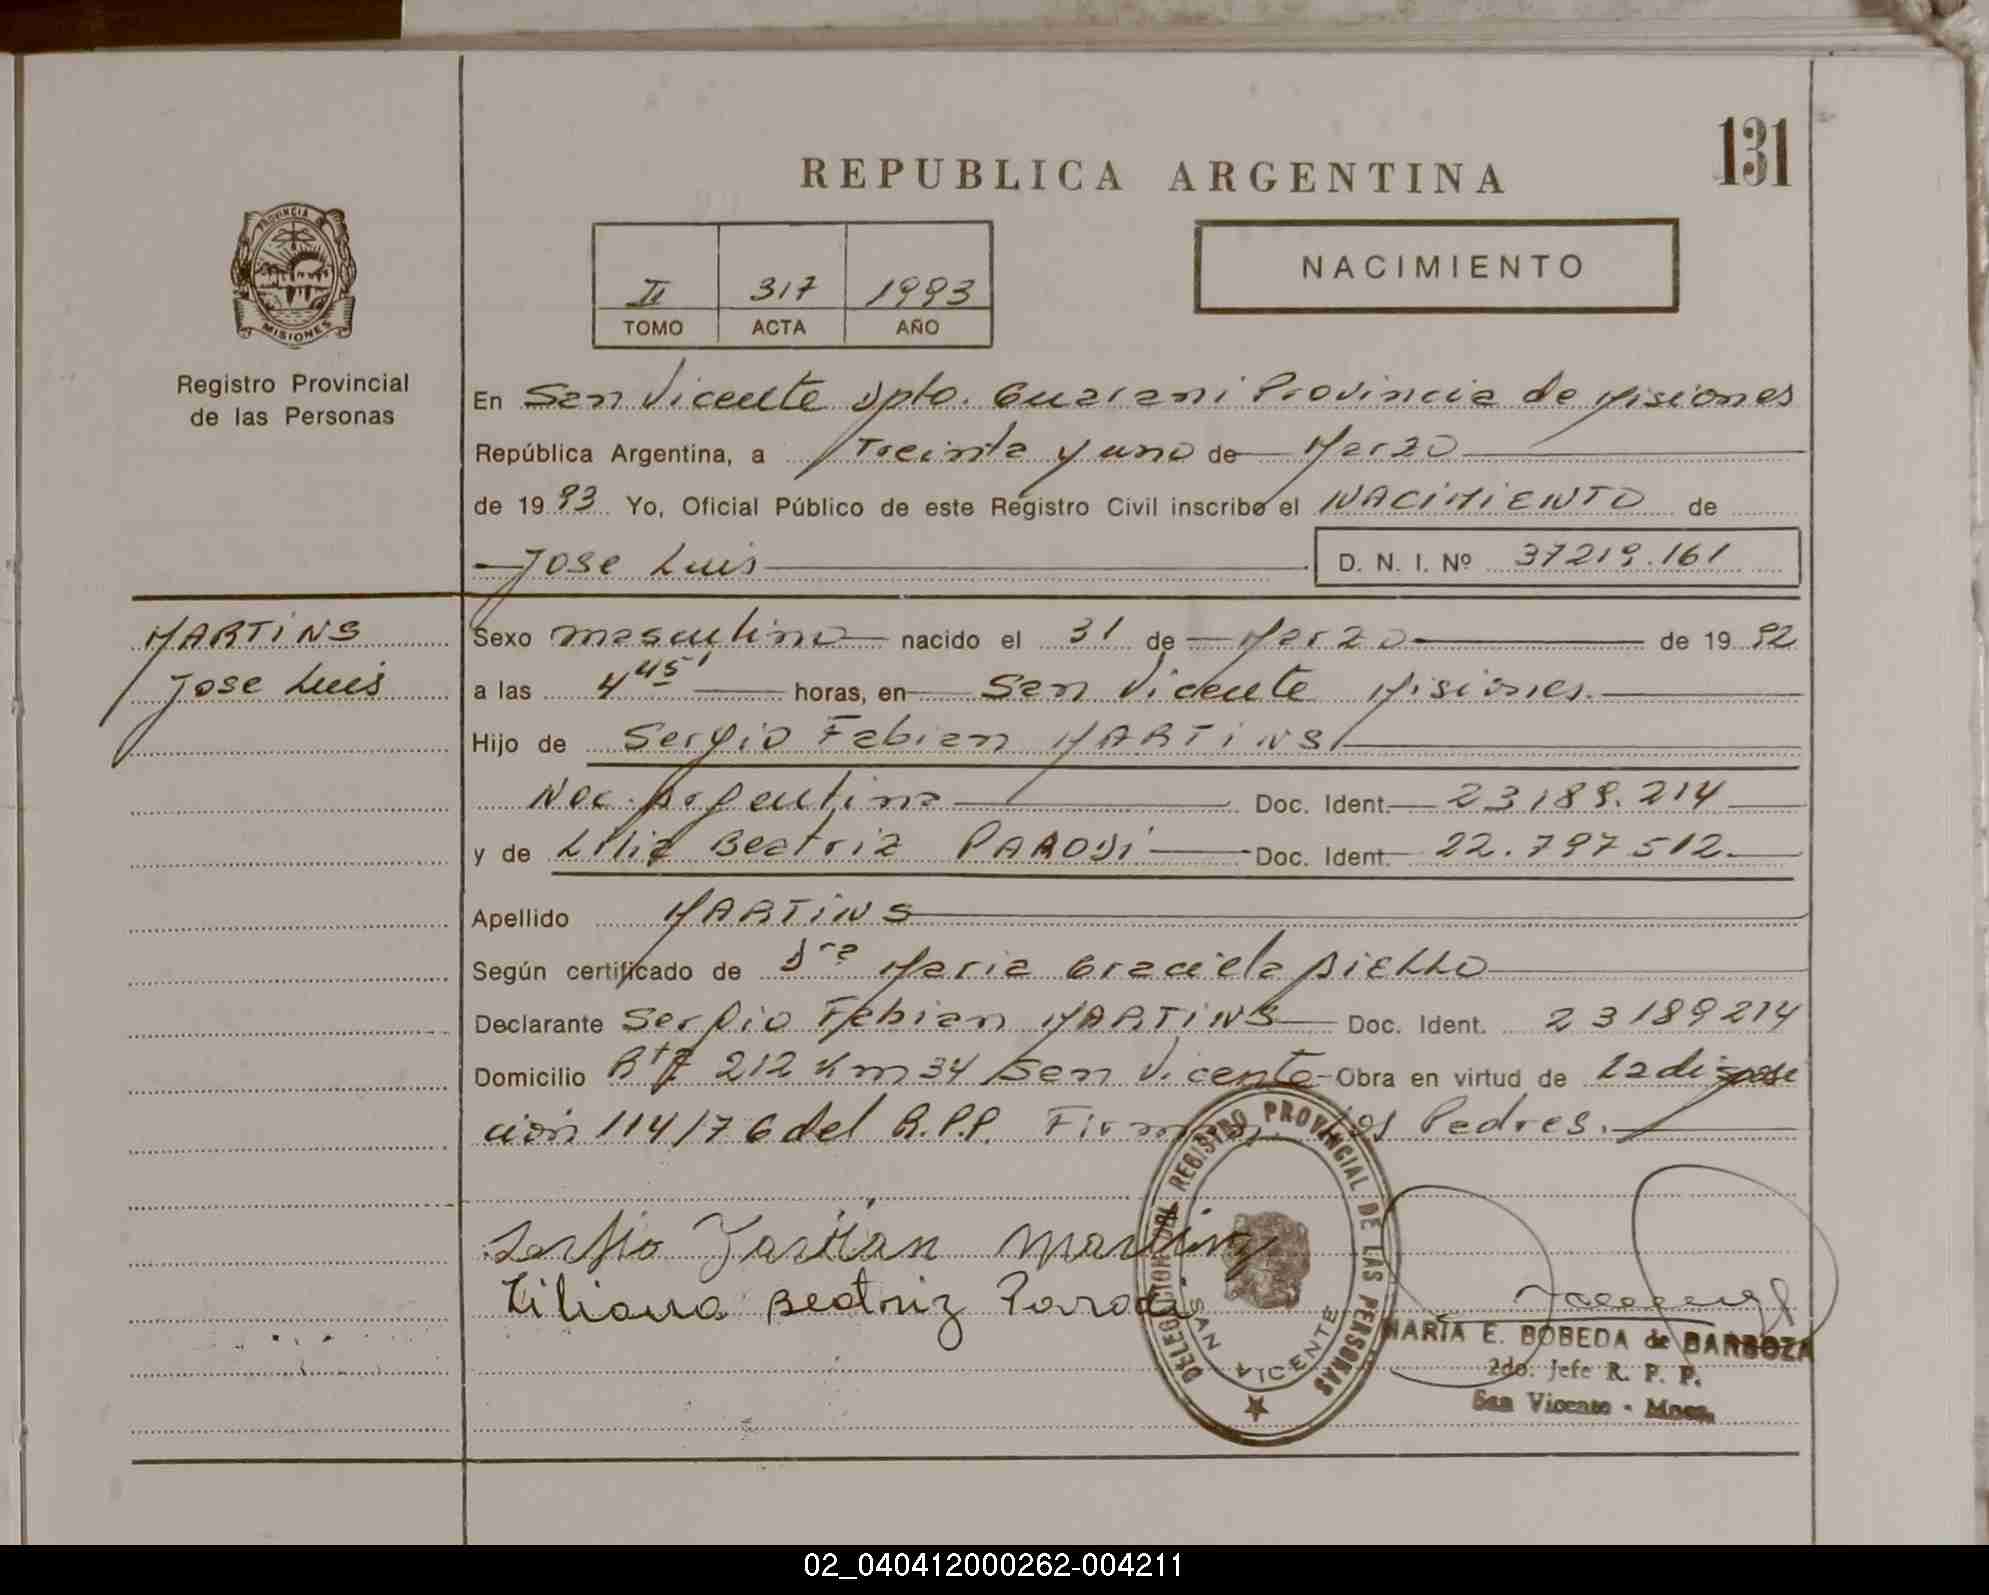 131
REPUBLICA ARGENTINA
II 317 1993
TOMO ACTA AÑO
NACIMIENTO
PROVINCIA DE
MISIONES
Registro Provincial
de las Personas
En San Vicente Dpto. Guarani Provincia de Misiones
República Argentina, a Treinta y uno de Marzo
de 1993 Yo, Oficial Público de este Registro Civil inscribo el NACIMIENTO de
Jose Luis
D. N. I. Nº 37219.161
MARTINS
Jose Luis
Sexo masculino nacido el 31 de Marzo de 1992
a las 4 45' horas, en San Vicente Misiones.
Hijo de Sergio Fabian MARTINS
Nac. Argentina Doc. Ident. 23189.214
y de Beatriz PARODI Doc. Ident. 22.797512
Apellido MARTINS
Según certificado de Dra Maria Graciela AIELLO
Declarante Sergio Fabian MARTINS Doc. Ident. 23189214
Domicilio 212 Km 34 San Vicente Obra en virtud de la disposi
ción 114/76 del R.P.P. Firman los Padres.
Sergio Fabian Martins
Liliana Beatriz Parodi
DELEGACION DEL REGISTRO PROVINCIAL DE LAS PERSONAS
SAN VICENTE
MARIA E. BOBEDA de BARBOZA
2do. Jefe R. P. P.
San Vicente - Mnes.
02_040412000262-004211